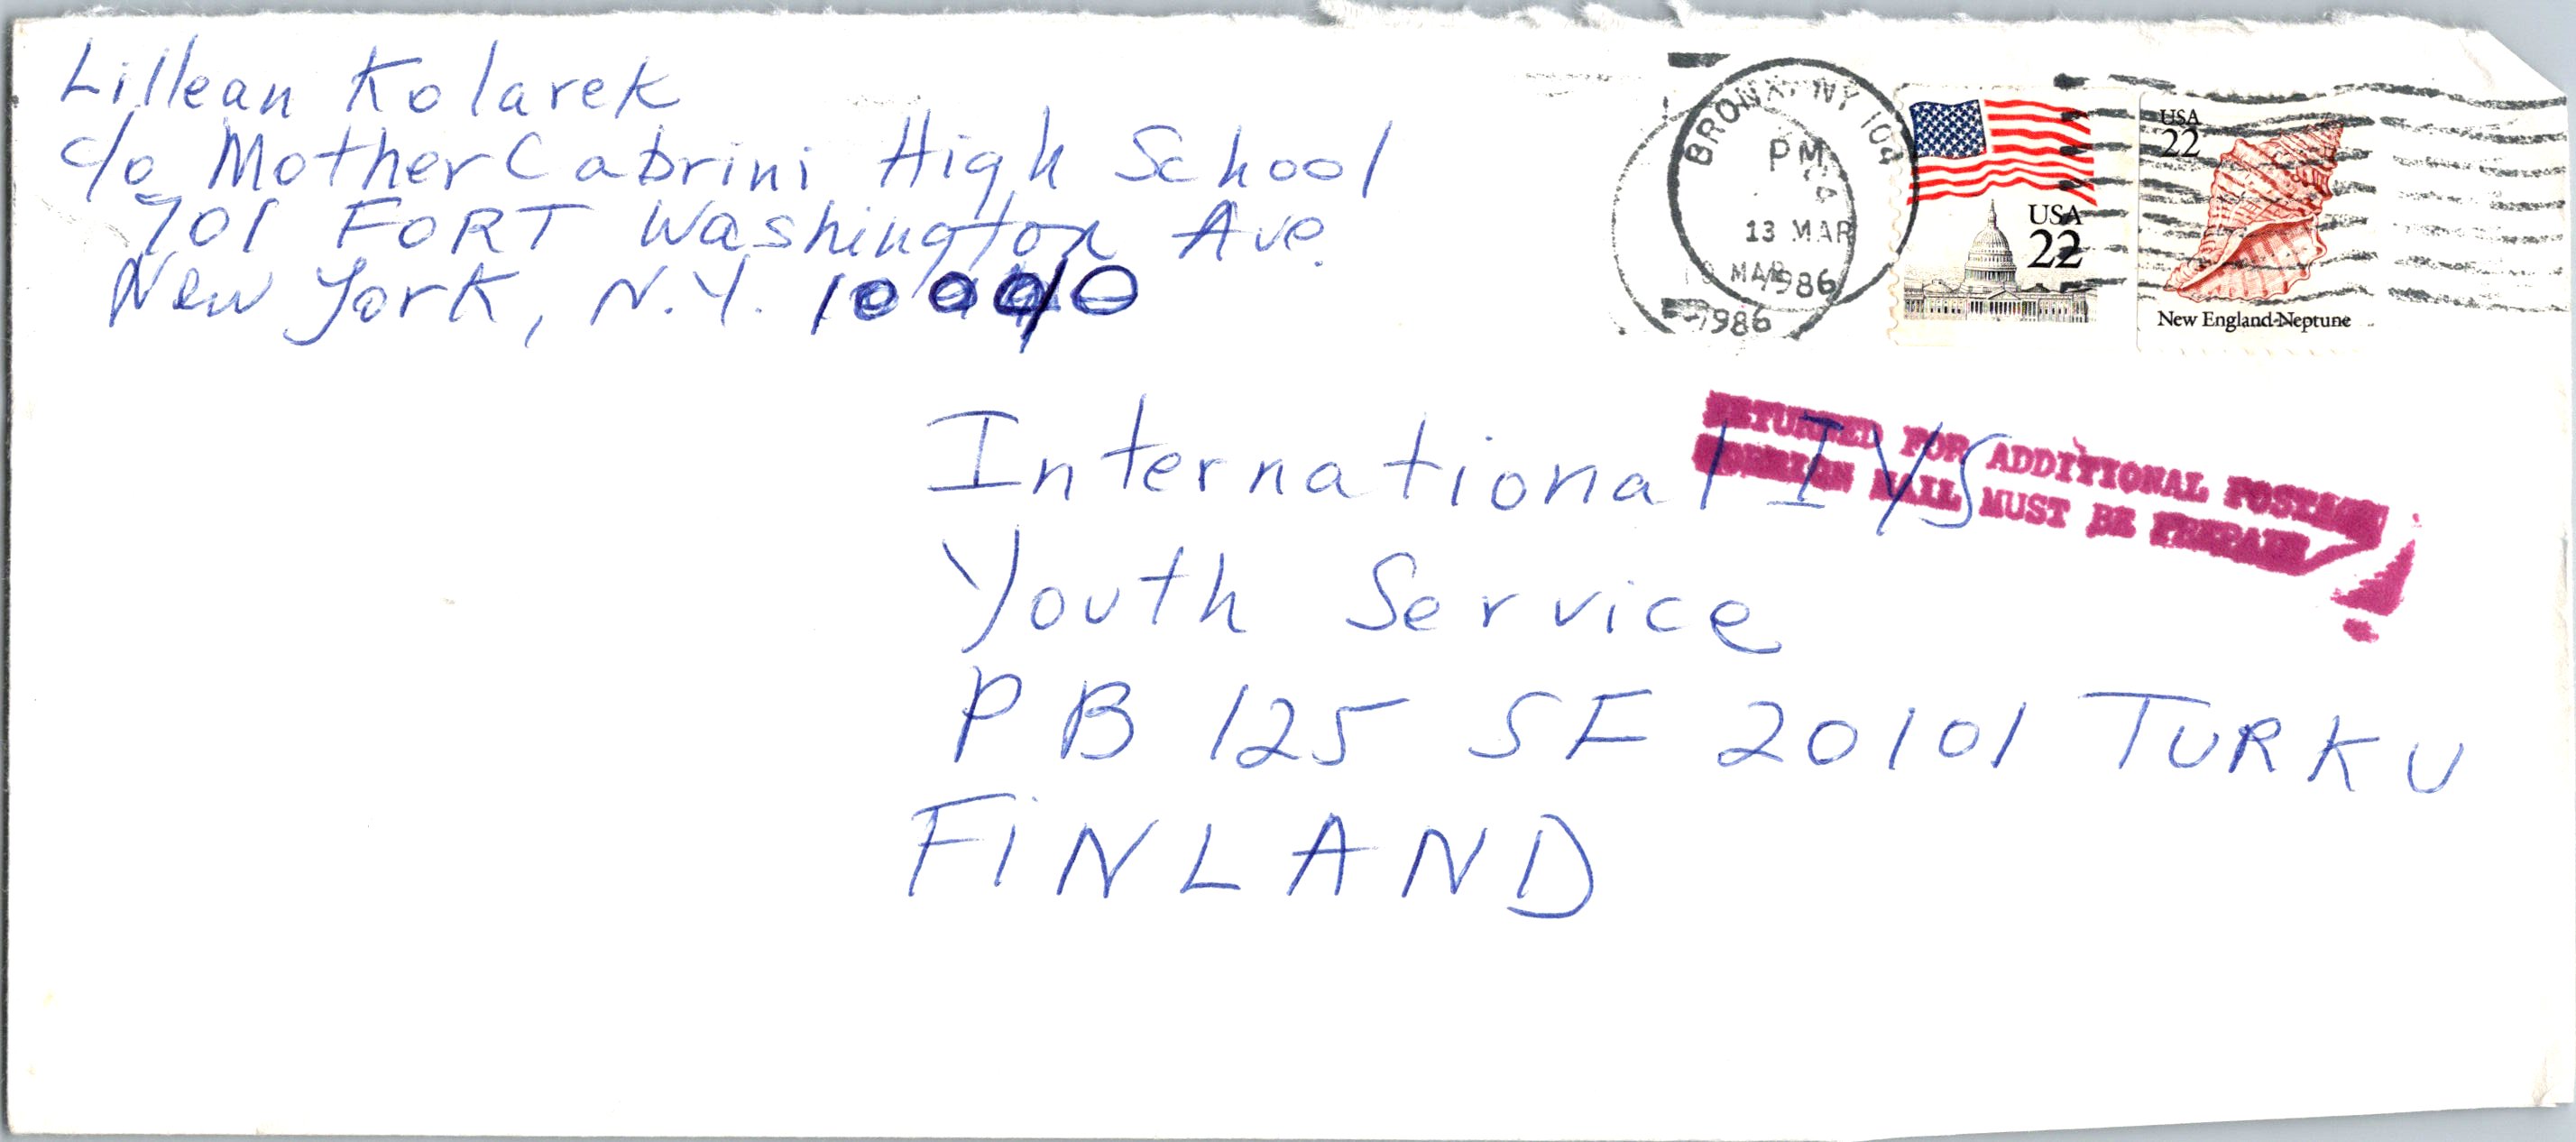 Lillean Kolarek
c/o Mother Cabrini High School
701 FORT Washington Ave.
New York, N.Y. 10040
BRONX, NY 104
PM
13 MAR
1986
MAR
1986
USA
22
USA
22
New England Neptune
RETURNED FOR ADDITIONAL POSTAGE
FOREIGN MAIL MUST BE PREPAID
International IYS
Youth Service
PB 125 SF 20101 TURKU
FINLAND